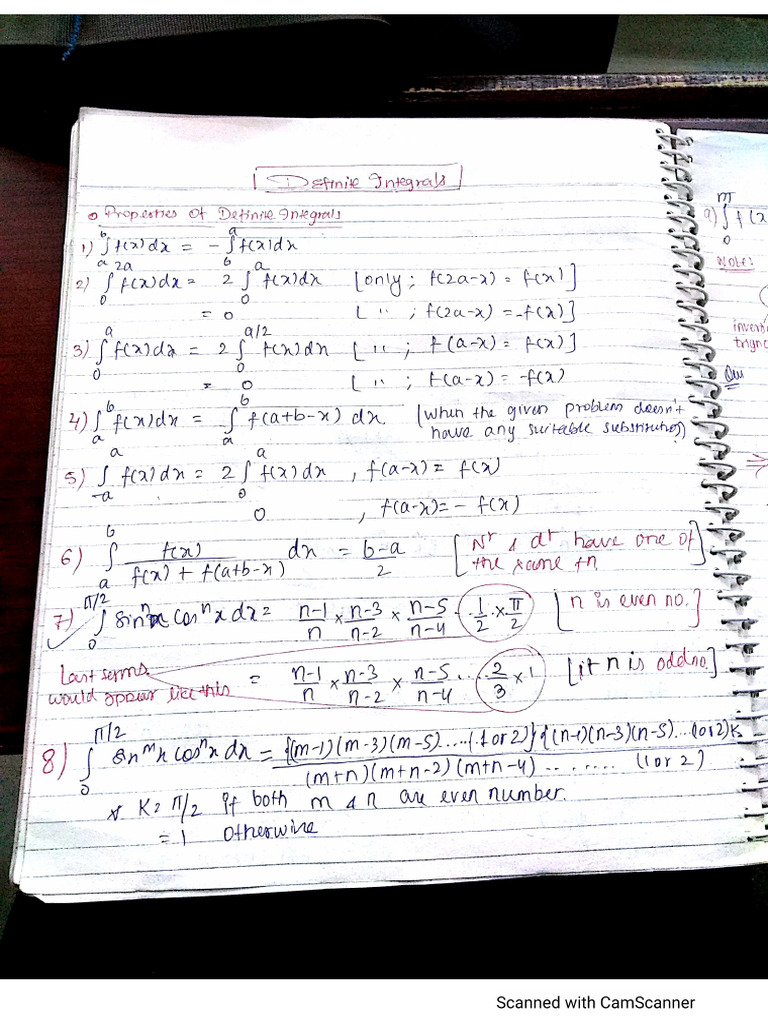 Definite Integrals
o Properties of Definite Integrals
1) ∫_a^b f(x) dx = -∫_b^a f(x) dx
2) ∫_0^2a f(x) dx = 2 ∫_0^a f(x) dx [only ; f(2a-x) = f(x)]
= 0 [ '' ; f(2a-x) = -f(x)]
3) ∫_0^a f(x) dx = 2 ∫_0^a/2 f(x) dx [ '' ; f(a-x) = f(x)]
= 0 [ '' ; f(a-x) = -f(x)
4) ∫_a^b f(x) dx = ∫_a^b f(a+b-x) dx. (when the given problem doesn't
have any suitable substitution)
5) ∫_-a^a f(x) dx = 2 ∫_0^a f(x) dx , f(a-x) = f(x)
0 , f(a-x) = - f(x)
6) ∫_a^b f(x) / (f(x) + f(a+b-x)) dx = (b-a)/2 [Nr & dr have one of
the same fn]
7) ∫_0^π/2 sin^n x cos^n x dx = (n-1)/n × (n-3)/(n-2) × (n-5)/(n-4) ... 1/2 × π/2 [n is even no.]
Last terms
would appear like this = (n-1)/n × (n-3)/(n-2) × (n-5)/(n-4) ... 2/3 × 1 [if n is odd no.]
8) ∫_0^π/2 sin^m x cos^n x dx = {(m-1)(m-3)(m-5)....(1 or 2)} {(n-1)(n-3)(n-5)...(1 or 2)K
(m+n)(m+n-2)(m+n-4)......... (1 or 2)
* K = π/2 if both m & n are even number.
= 1 otherwise
9) ∫_0^mπ f(x
Note:
Que
⇒
Scanned with CamScanner